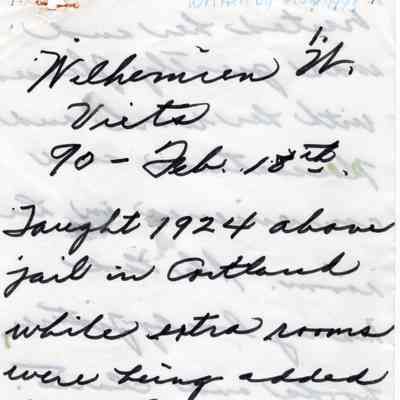 Wilhemien W.
Viets
90 - Feb. 18th.
Taught 1924 above
jail in Cortland
while extra rooms
were being added